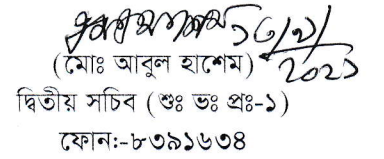 (মোঃ আবুল হাশেম)
দ্বিতীয় সচিব (শুঃ ভঃ প্রঃ-১)
ফোন:-৮৩৯১৬৩৪